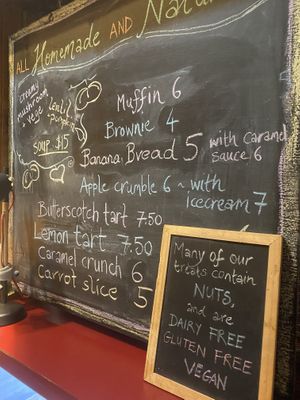 ALL Homemade AND Natu
Creamy
mushroom
+ vege
Lentil
+ pumpkin
SOUP $15
Muffin 6
Brownie 4
Banana Bread 5 with Caramel
sauce 6
Apple crumble 6 ~ with
icecream 7
Butterscotch tart 7.50
Lemon tart 7.50
Caramel crunch 6
Carrot slice 5
Many of our
treats contain
NUTS,
and are
DAIRY FREE
GLUTEN FREE
VEGAN